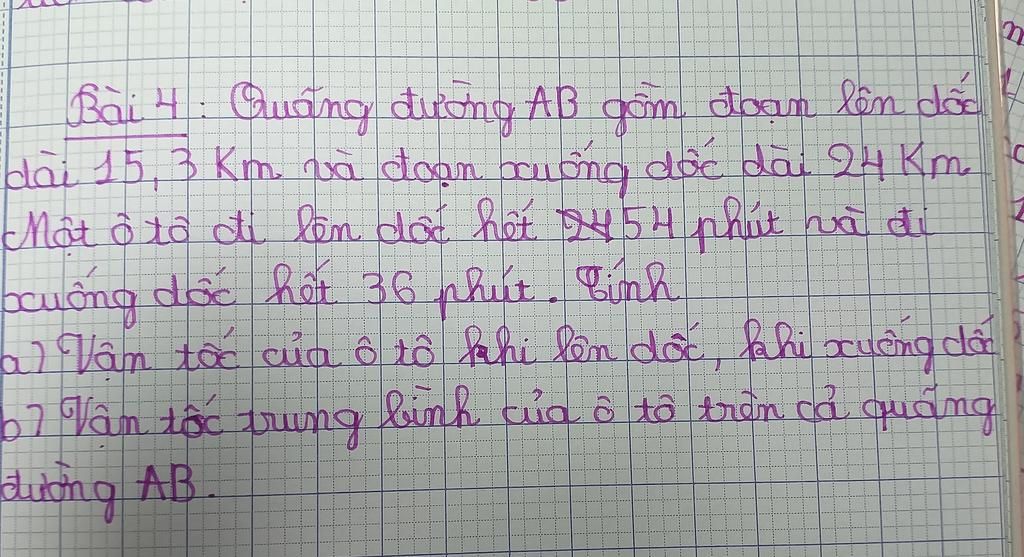 Bài 4: Quãng đường AB gồm đoạn lên dốc
dài 15,3 Km và đoạn xuống dốc dài 24 Km
Một ô tô đi lên dốc hết 54 phút và đi
xuống dốc hết 36 phút. Tính
a) Vận tốc của ô tô khi lên dốc, khi xuống dốc
b) Vận tốc trung bình của ô tô trên cả quãng
đường AB.